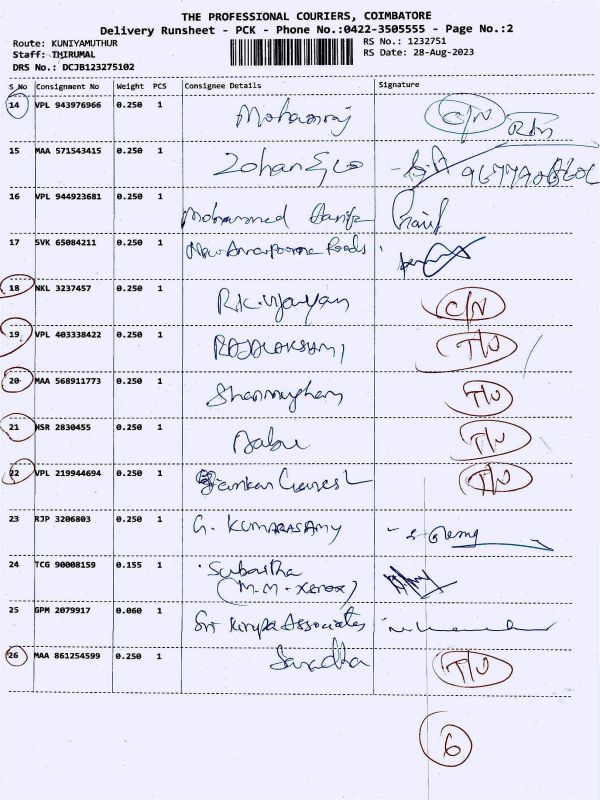 THE PROFESSIONAL COURIERS, COIMBATORE
Delivery Runsheet - PCK - Phone No.:0422-3505555 - Page No.:2
Route: KUNIYAMUTHUR RS No.: 1232751
Staff: THIRUMAL RS Date: 28-Aug-2023
DRS No.: DCJB123275102
S No Consignment No Weight PCS Consignee Details Signature
14 VPL 943976966 0.250 1 Mohanraj C/N
15 MAA 571543415 0.250 1
16 VPL 944923681 0.250 1 Mohammed Hanifa
17 SVK 65084211 0.250 1 New Annapoorna Foods
18 NKL 3237457 0.250 1 R.K. Vijayan C/N
19 VPL 403338422 0.250 1 RAJALAKSHMI T/U
20 MAA 568911773 0.250 1 Shanmugham T/U
21 HSR 2830455 0.250 1 Babu T/U
22 VPL 219944694 0.250 1 T/U
23 RJP 3206803 0.250 1 G. KUMARASAMY
24 TCG 90008159 0.155 1
(M.M - xerox)
25 GPM 2079917 0.060 1 Sri Kirupa Associates
26 MAA 861254599 0.250 1 Saradha T/U
6